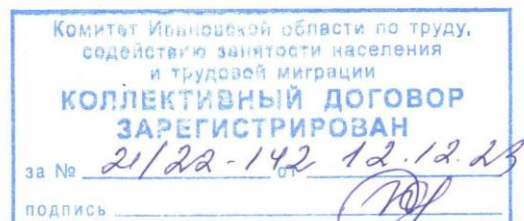 Комитет Ивановской области по труду,
содействию занятости населения
и трудовой миграции
КОЛЛЕКТИВНЫЙ ДОГОВОР
ЗАРЕГИСТРИРОВАН
за № 21/22-142 от 12.12.23
подпись